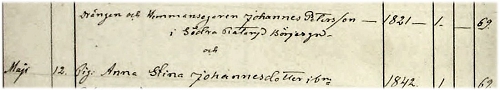 Drängen och Hemmansegaren Johannes Petersson — 1821 — 1. — 69.
i Södra
och
Maji 12. Pig. Anna Stina Johannesdotter ibm 1842. 1. 69